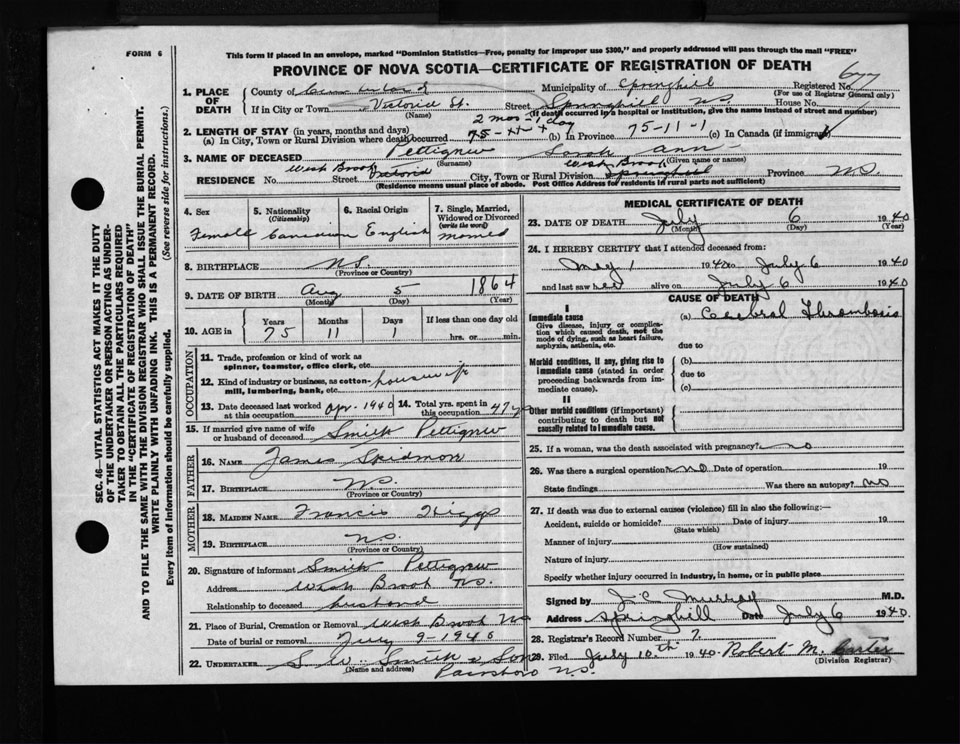 FORM 6
This form if placed in an envelope, marked "Dominion Statistics—Free, penalty for improper use $300," and properly addressed will pass through the mail "FREE"
PROVINCE OF NOVA SCOTIA—CERTIFICATE OF REGISTRATION OF DEATH
SEC. 46—VITAL STATISTICS ACT MAKES IT THE DUTY
OF THE UNDERTAKER OR PERSON ACTING AS UNDER-
TAKER TO OBTAIN ALL THE PARTICULARS REQUIRED
IN THE "CERTIFICATE OF REGISTRATION OF DEATH"
AND TO FILE THE SAME WITH THE DIVISION REGISTRAR WHO SHALL ISSUE THE BURIAL PERMIT.
WRITE PLAINLY WITH UNFADING INK. THIS IS A PERMANENT RECORD.
Every item of information should be carefully supplied. (See reverse side for instructions.)
1. PLACE OF DEATH
County of Cumberland Municipality of Springhill Registered No. 677
(For use of Registrar General only)
If in City or Town Victoria St. Street Springhill NS House No.
(Name) (If death occurred in a hospital or institution, give the name instead of street and number)
2 mos - 1 day
2. LENGTH OF STAY (in years, months and days)
(a) In City, Town or Rural Division where death occurred 75 (b) In Province 75-11-1 (c) In Canada (if immigrant)
3. NAME OF DECEASED Pettigrew Sarah Ann
(Surname) (Given name or names)
West Brook West Brook
RESIDENCE No. Street Victoria City, Town or Rural Division Springhill Province N.S.
(Residence means usual place of abode. Post Office Address for residents in rural parts not sufficient)
4. Sex 5. Nationality (Citizenship) 6. Racial Origin 7. Single, Married, Widowed or Divorced (write the word)
Female Canadian English married
8. BIRTHPLACE N.S.
(Province or Country)
9. DATE OF BIRTH Aug 5 1864
(Month) (Day) (Year)
10. AGE in Years Months Days If less than one day old
75 11 1 hrs. or min.
OCCUPATION
11. Trade, profession or kind of work as
spinner, teamster, office clerk, etc.
12. Kind of industry or business, as cotton-
mill, lumbering, bank, etc. housewife
13. Date deceased last worked at this occupation Apr. 1940 14. Total yrs. spent in this occupation 47
15. If married give name of wife
or husband of deceased Smith Pettigrew
FATHER
16. NAME James Skidmore
17. BIRTHPLACE N.S.
(Province or Country)
MOTHER
18. MAIDEN NAME Francis Higgs
19. BIRTHPLACE N.S.
(Province or Country)
20. Signature of informant Smith Pettigrew
Address West Brook N.S.
Relationship to deceased husband
21. Place of Burial, Cremation or Removal West Brook NS
Date of burial or removal July 9-1940
22. UNDERTAKER S. W. Smith & Son
(Name and address)
Parrsboro N.S.
MEDICAL CERTIFICATE OF DEATH
23. DATE OF DEATH July 6 1940
(Month) (Day) (Year)
24. I HEREBY CERTIFY that I attended deceased from:
May 1 1940 to July 6 1940
and last saw her alive on July 6 1940
CAUSE OF DEATH
I
Immediate cause
Give disease, injury or complica-
tion which caused death, not the
mode of dying, such as heart failure,
asphyxia, asthenia, etc.
(a) Cerebral Thrombosis
due to
Morbid conditions, if any, giving rise to
immediate cause (stated in order
proceeding backwards from im-
mediate cause).
(b)
due to
(c)
II
Other morbid conditions (if important)
contributing to death but not
causally related to immediate cause.
25. If a woman, was the death associated with pregnancy? no
26. Was there a surgical operation? no Date of operation 19
State findings Was there an autopsy? no
27. If death was due to external causes (violence) fill in also the following:—
Accident, suicide or homicide? Date of injury 19
(State which)
Manner of injury
(How sustained)
Nature of injury
Specify whether injury occurred in industry, in home, or in public place
Signed by J.C. Murray M.D.
Address Springhill Date July 6 1940
28. Registrar's Record Number 7.
29. Filed July 10th 1940 Robert M. Carter
(Division Registrar)